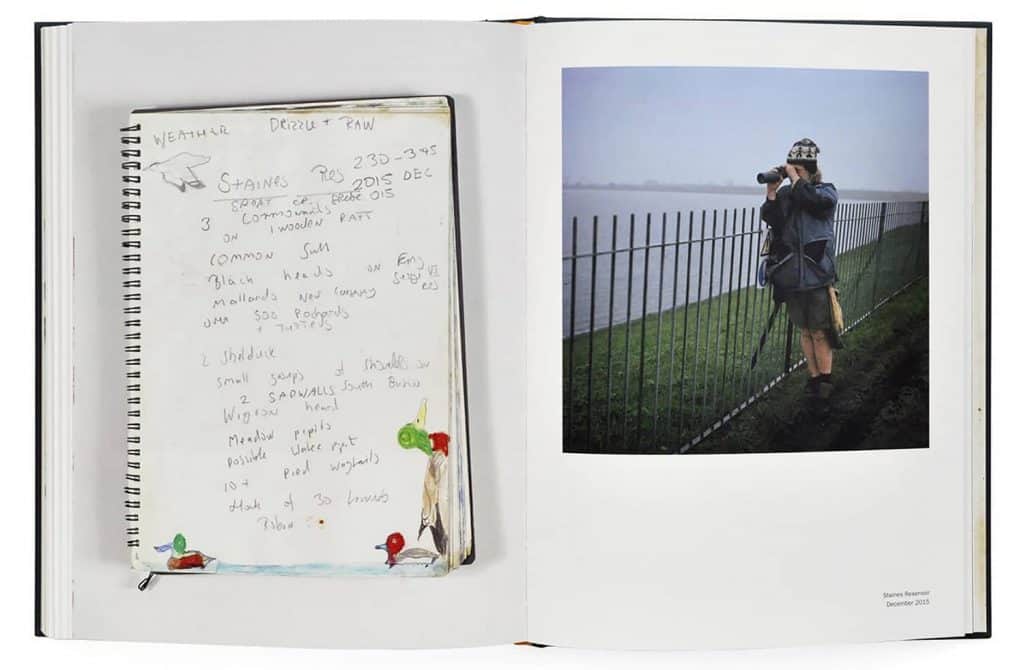 WEATHER DRIZZLE + RAW
STAINES RES 230-345
2015 DEC
GREAT CR GREBE 015
3 Cormorants
ON 1 WOODEN RAFT
COMMON Gull
Black heads ON
Mallards NEW
500 Pochards
+ TUFTEDS
2 Shelduck
small groups of shovellers on
2 GADWALLS South Basin
Wigeon heard
Meadow pipits
Possible Water pipit
10+ Pied wagtails
flock of 30
Robin
Staines Reservoir
December 2015